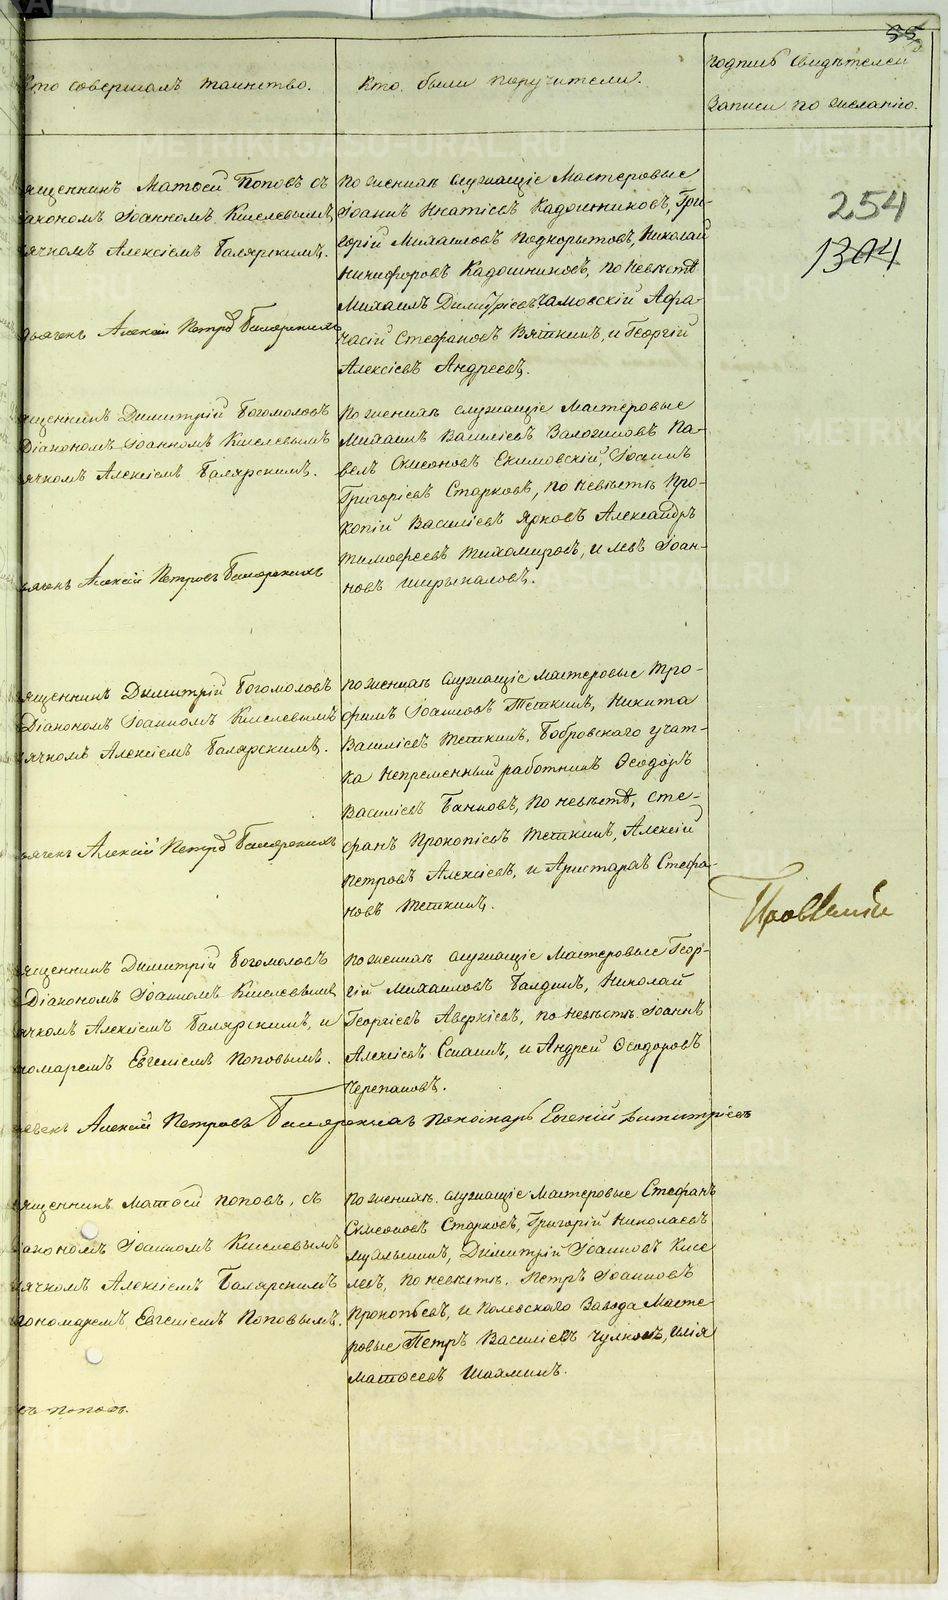 55
Кто совершалъ таинство.
Кто были поручители.
Подпись свидѣтелей
Записи по желанію.
254
1304
ященникъ Матѳей Поповъ съ
іакономъ Іоанномъ Киселевымъ,
ячкомъ Алексіемъ Балярскимъ.
дьячекъ Алексѣй Петровъ
По женихѣ служащіе Мастеровые
Іоаннъ Игнатіевъ Кадошниковъ, Гри-
горій Михаиловъ Подкорытовъ, Николай
Никифоровъ Кадошниковъ, по невѣстѣ
Михаилъ Димитріевъ Чамовскій Афа-
насій Стефановъ Вяткинъ, и Георгій
Алексіевъ Андреевъ.
ященникъ Димитрій Богомоловъ
Діакономъ Іоанномъ Киселевымъ
ячкомъ Алексіемъ Балярскимъ.
ячекъ Алексѣй Петровъ
По женихѣ служащіе Мастеровые
Михаилъ Василіевъ Па-
велъ Симеоновъ Екимовскій, Іоаннъ
Григоріевъ Старковъ, по невѣстѣ Про-
копій Василіевъ Ярковъ Александръ
Тимофеевъ Тихомировъ, и Левъ Іоан-
новъ Ширыкаловъ.
ященникъ Димитрій Богомоловъ
Діакономъ Іоанномъ Киселевымъ
ячкомъ Алексіемъ Балярскимъ.
ячекъ Алексѣй Петровъ
По женихѣ служащіе Мастеровые Тро-
фимъ Іоанновъ Теткинъ, Никита
Василіевъ Теткинъ. Бобровскаго учат-
ка непременный работникъ Ѳеодоръ
Василіевъ Банновъ, по невѣстѣ, Сте-
фанъ Прокопіевъ Теткинъ, Алексій
Петровъ Алексіевъ, и Аристархъ Стефа-
новъ Теткинъ.
ященникъ Димитрій Богомоловъ
Діакономъ Іоанномъ Киселевымъ
ячкомъ Алексіемъ Балярскимъ, и
номаремъ Евгеніемъ Поповымъ.
По женихѣ служащіе Мастеровые Геор-
гій Михаиловъ Балдинъ, Николай
Георгіевъ Аверкіевъ, по невѣстѣ Іоаннъ
Алексіевъ и Андрей Ѳеодоровъ
Черепановъ.
Алексѣй Петровъ Пономарь Евгеній Димитріевъ
ященникъ Матѳей Поповъ, съ
іакономъ Іоанномъ Киселевымъ
ячкомъ Алексіемъ Балярскимъ
ономаремъ Евгеніемъ Поповымъ.
ъ Поповъ.
По женихѣ служащіе Мастеровые Стефанъ
Симеоновъ Старковъ, Григорій Николаевъ
Димитрій Іоанновъ Кисе
левъ, по невѣстѣ. Петръ Іоанновъ
Прокопьевъ, и Полевскаго Завода Масте-
ровые Петръ Василіевъ Чулковъ, Илія
Матѳеевъ Шаяминъ.
METRIKI.GASO-URAL.RU